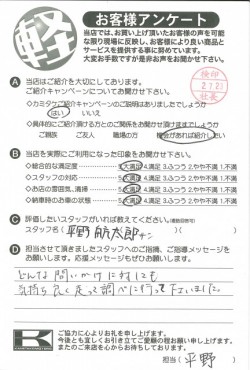 軽
お客様アンケート
当店では、お買い上げ頂いたお客様の声を可能
な限り現場に反映し、お客様により良い商品と
サービスを提供する事に努めています。
大変お手数ですが是非お声をお聞かせ下さい。
検印
社長
A 当店はご紹介を大切にしております。
ご紹介キャンペーンについてお聞かせ下さい。
◇カミタケご紹介キャンペーンのご説明はありましたでしょうか
はい いいえ
◇具体的にご紹介頂ける方とのご関係をお聞かせ頂けますでしょうか
ご親族 ご友人 職場の方 機会があれば紹介したい
B 当店を実際にご利用になった印象をお聞かせ下さい。
◇総合的な満足度 5.大満足 4.満足 3.ふつう 2.やや不満 1.不満
◇スタッフの対応 5.大満足 4.満足 3.ふつう 2.やや不満 1.不満
◇お店の雰囲気、清掃 5.大満足 4.満足 3.ふつう 2.やや不満 1.不満
◇納車時のお車の状態 5.大満足 4.満足 3.ふつう 2.やや不満 1.不満
C 評価したいスタッフがいれば教えてください。(複数回答可)
スタッフ名( 平野 航太郎サン )( )
D 担当させて頂きましたスタッフへのご指摘、ご指導メッセージを
お願いします。応援メッセージもぜひお願いします。
どんな問いかけに対しても
気持ち良く走って調べに行って下さいました。
K
ご協力に心よりお礼を申し上げます。
今後とも宜しくお引き立てご愛顧の程お願い申し上げます。
またのご来店を心からお待ちしております。
担当( 平野 )